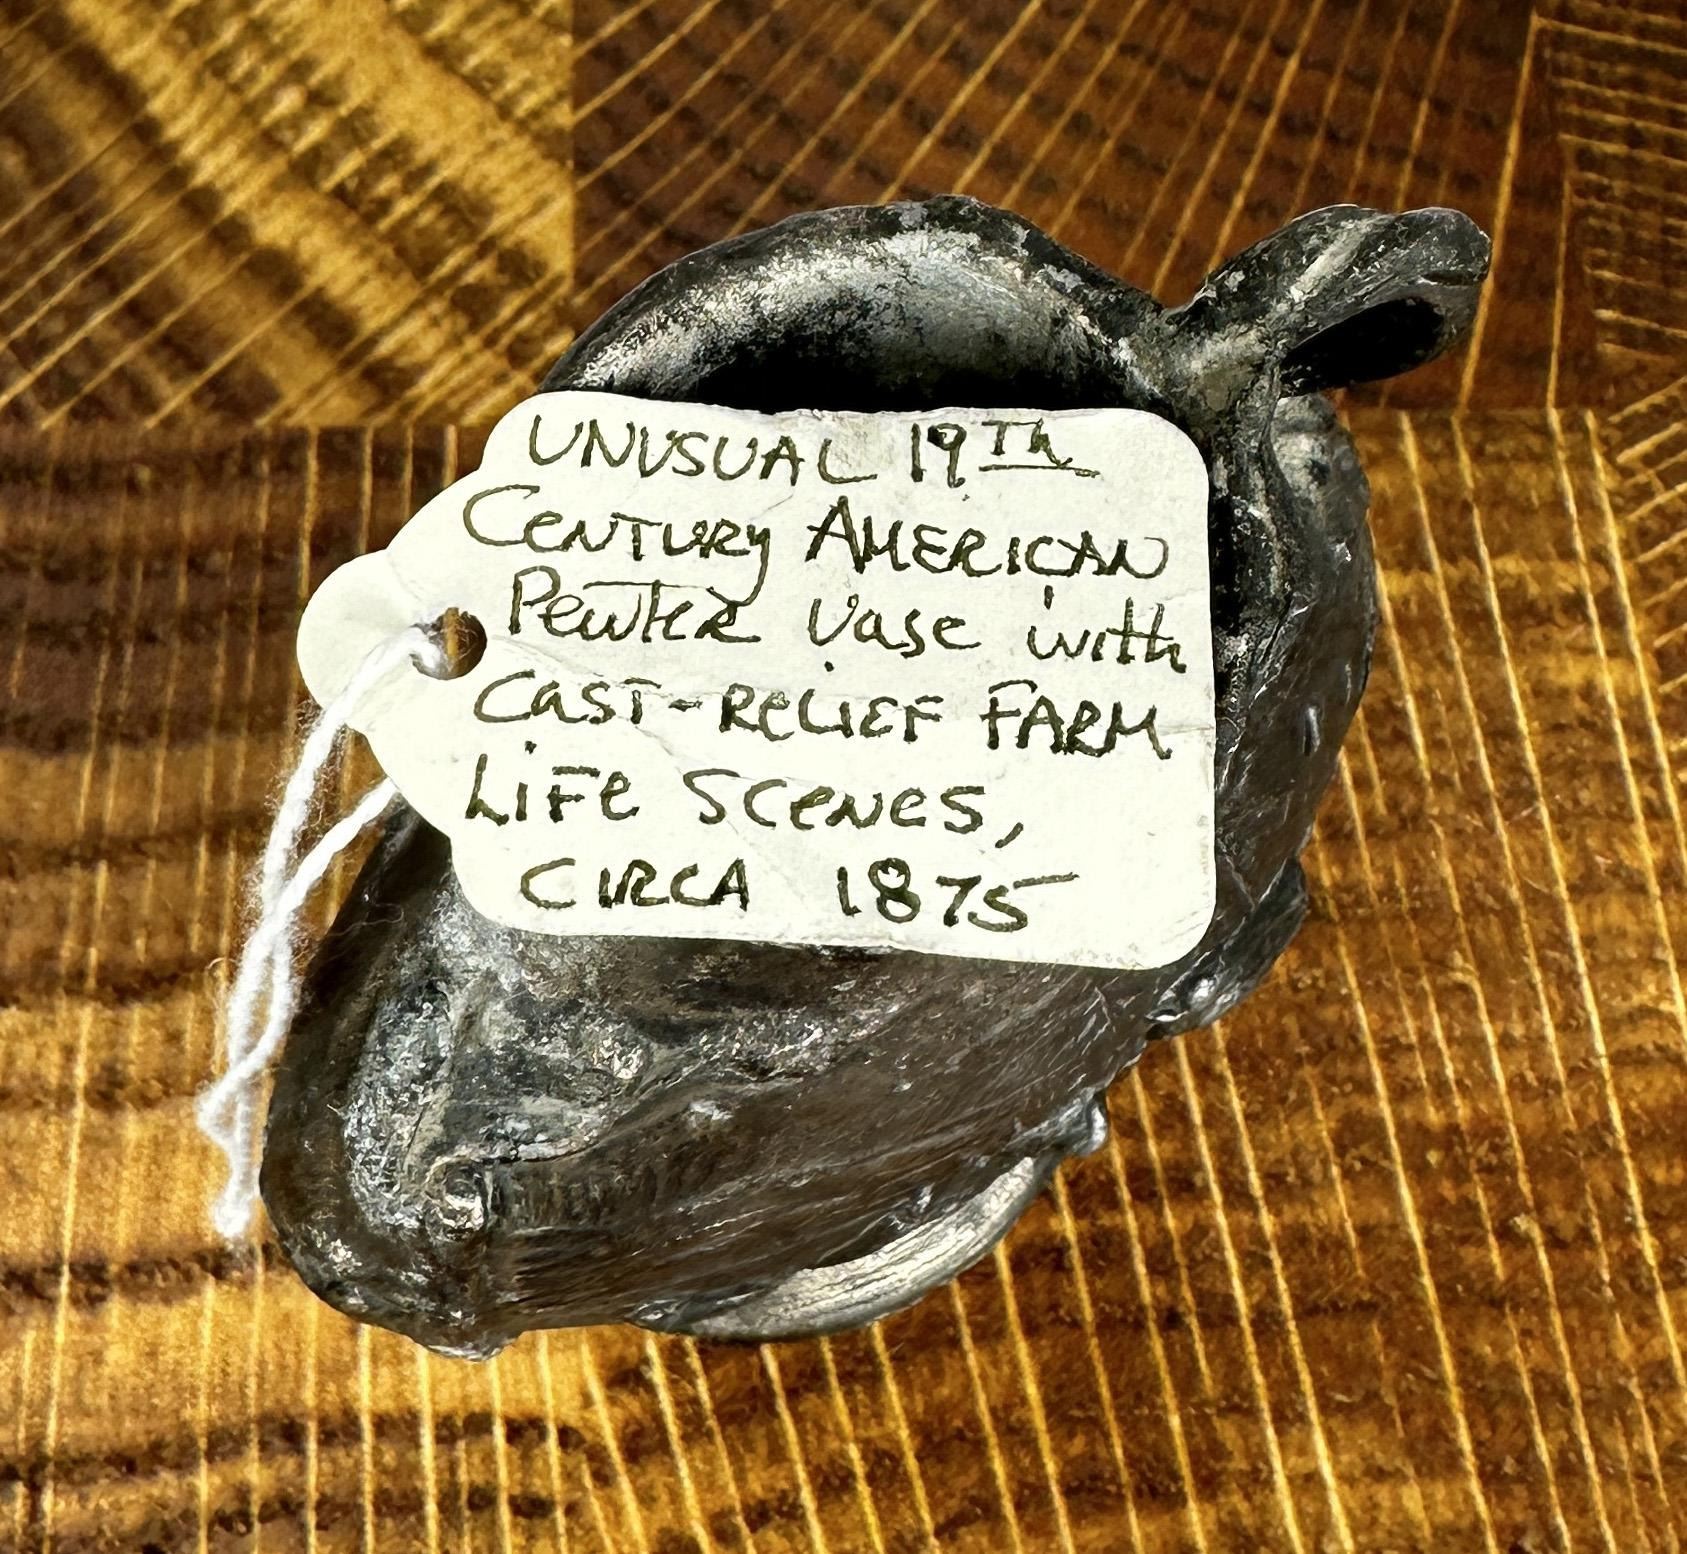 UNUSUAL 19Th
CENTURY AMERICAN
Pewter Vase with
CAST-RELIEF FARM
LIFE SCENES,
CIRCA 1875